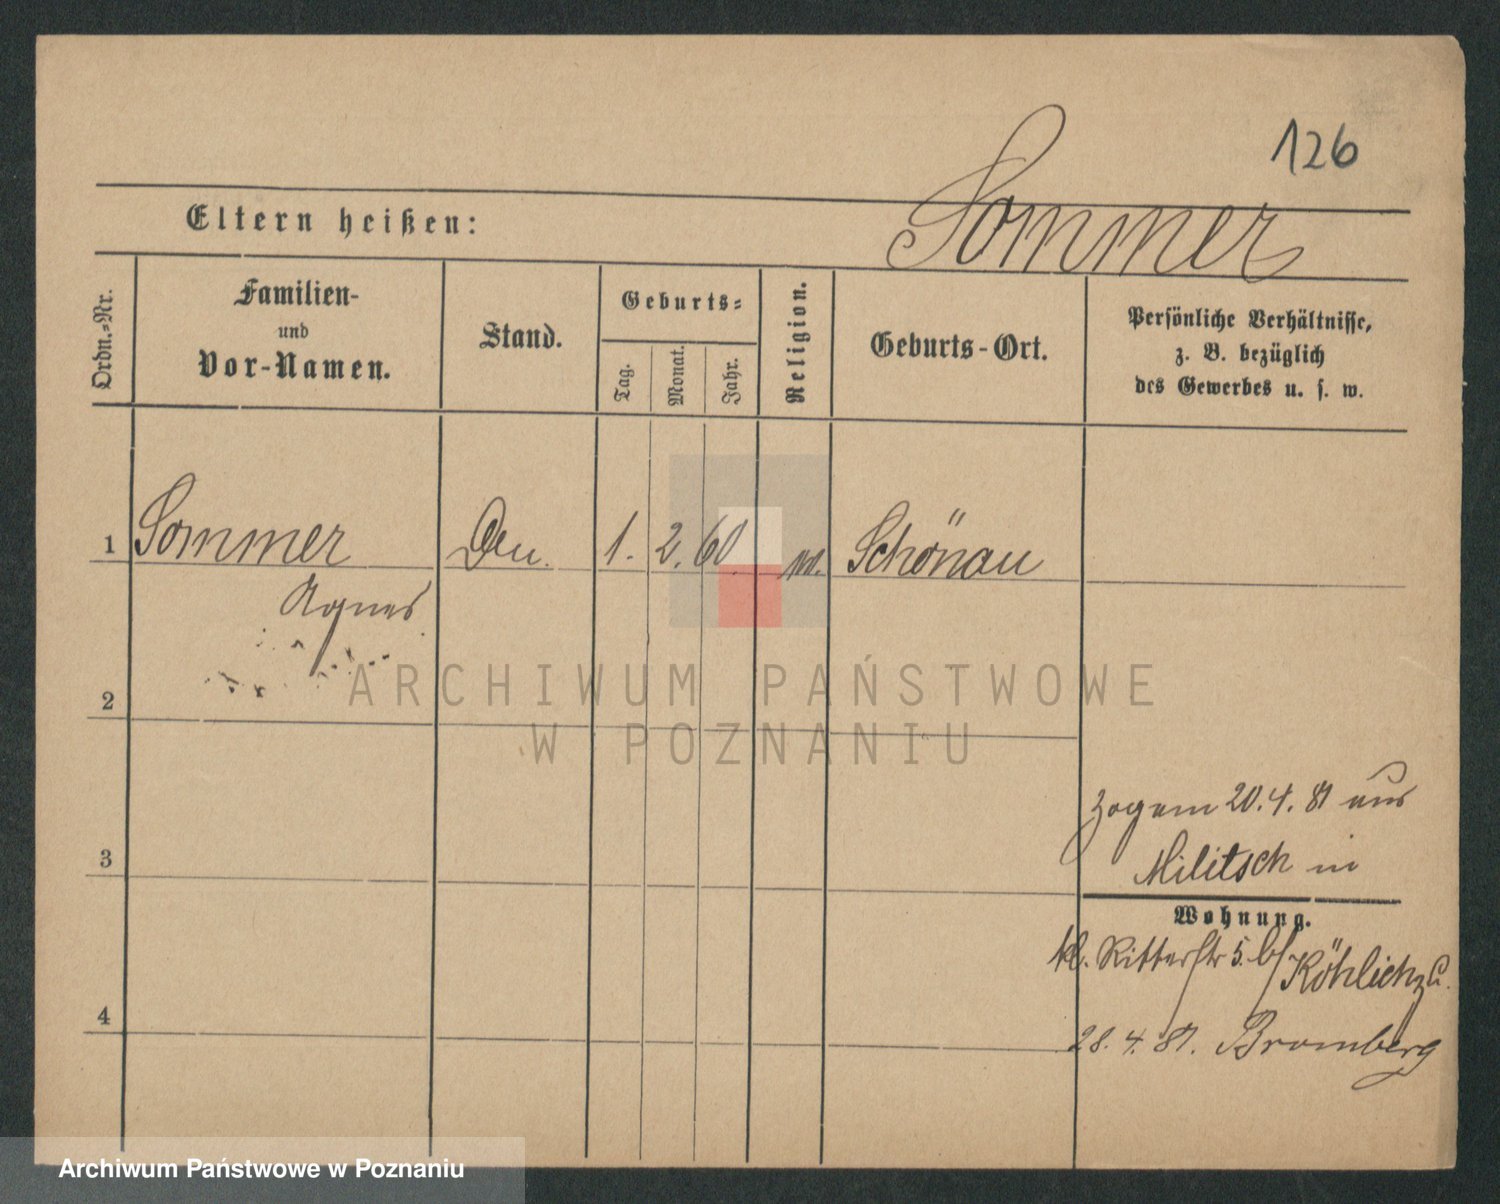 126
Eltern heißen:
Sommer
Ordn.-Nr.
Familien-
und
Vor-Namen.
Stand.
Geburts-
Tag.
Monat.
Jahr.
Religion.
Geburts-Ort.
Persönliche Verhältnisse,
z. B. bezüglich
des Gewerbes u. s. w.
1 Sommer 1. 2. 60. Schönau
Agnes
2
3
4
zog am 20.4.81 aus
Militsch in
Wohnung.
kl. Ritterstr 5. b/ Köhlich z u.
28. 4. 81. Bromberg
ARCHIWUM PAŃSTWOWE
W POZNANIU
Archiwum Państwowe w Poznaniu